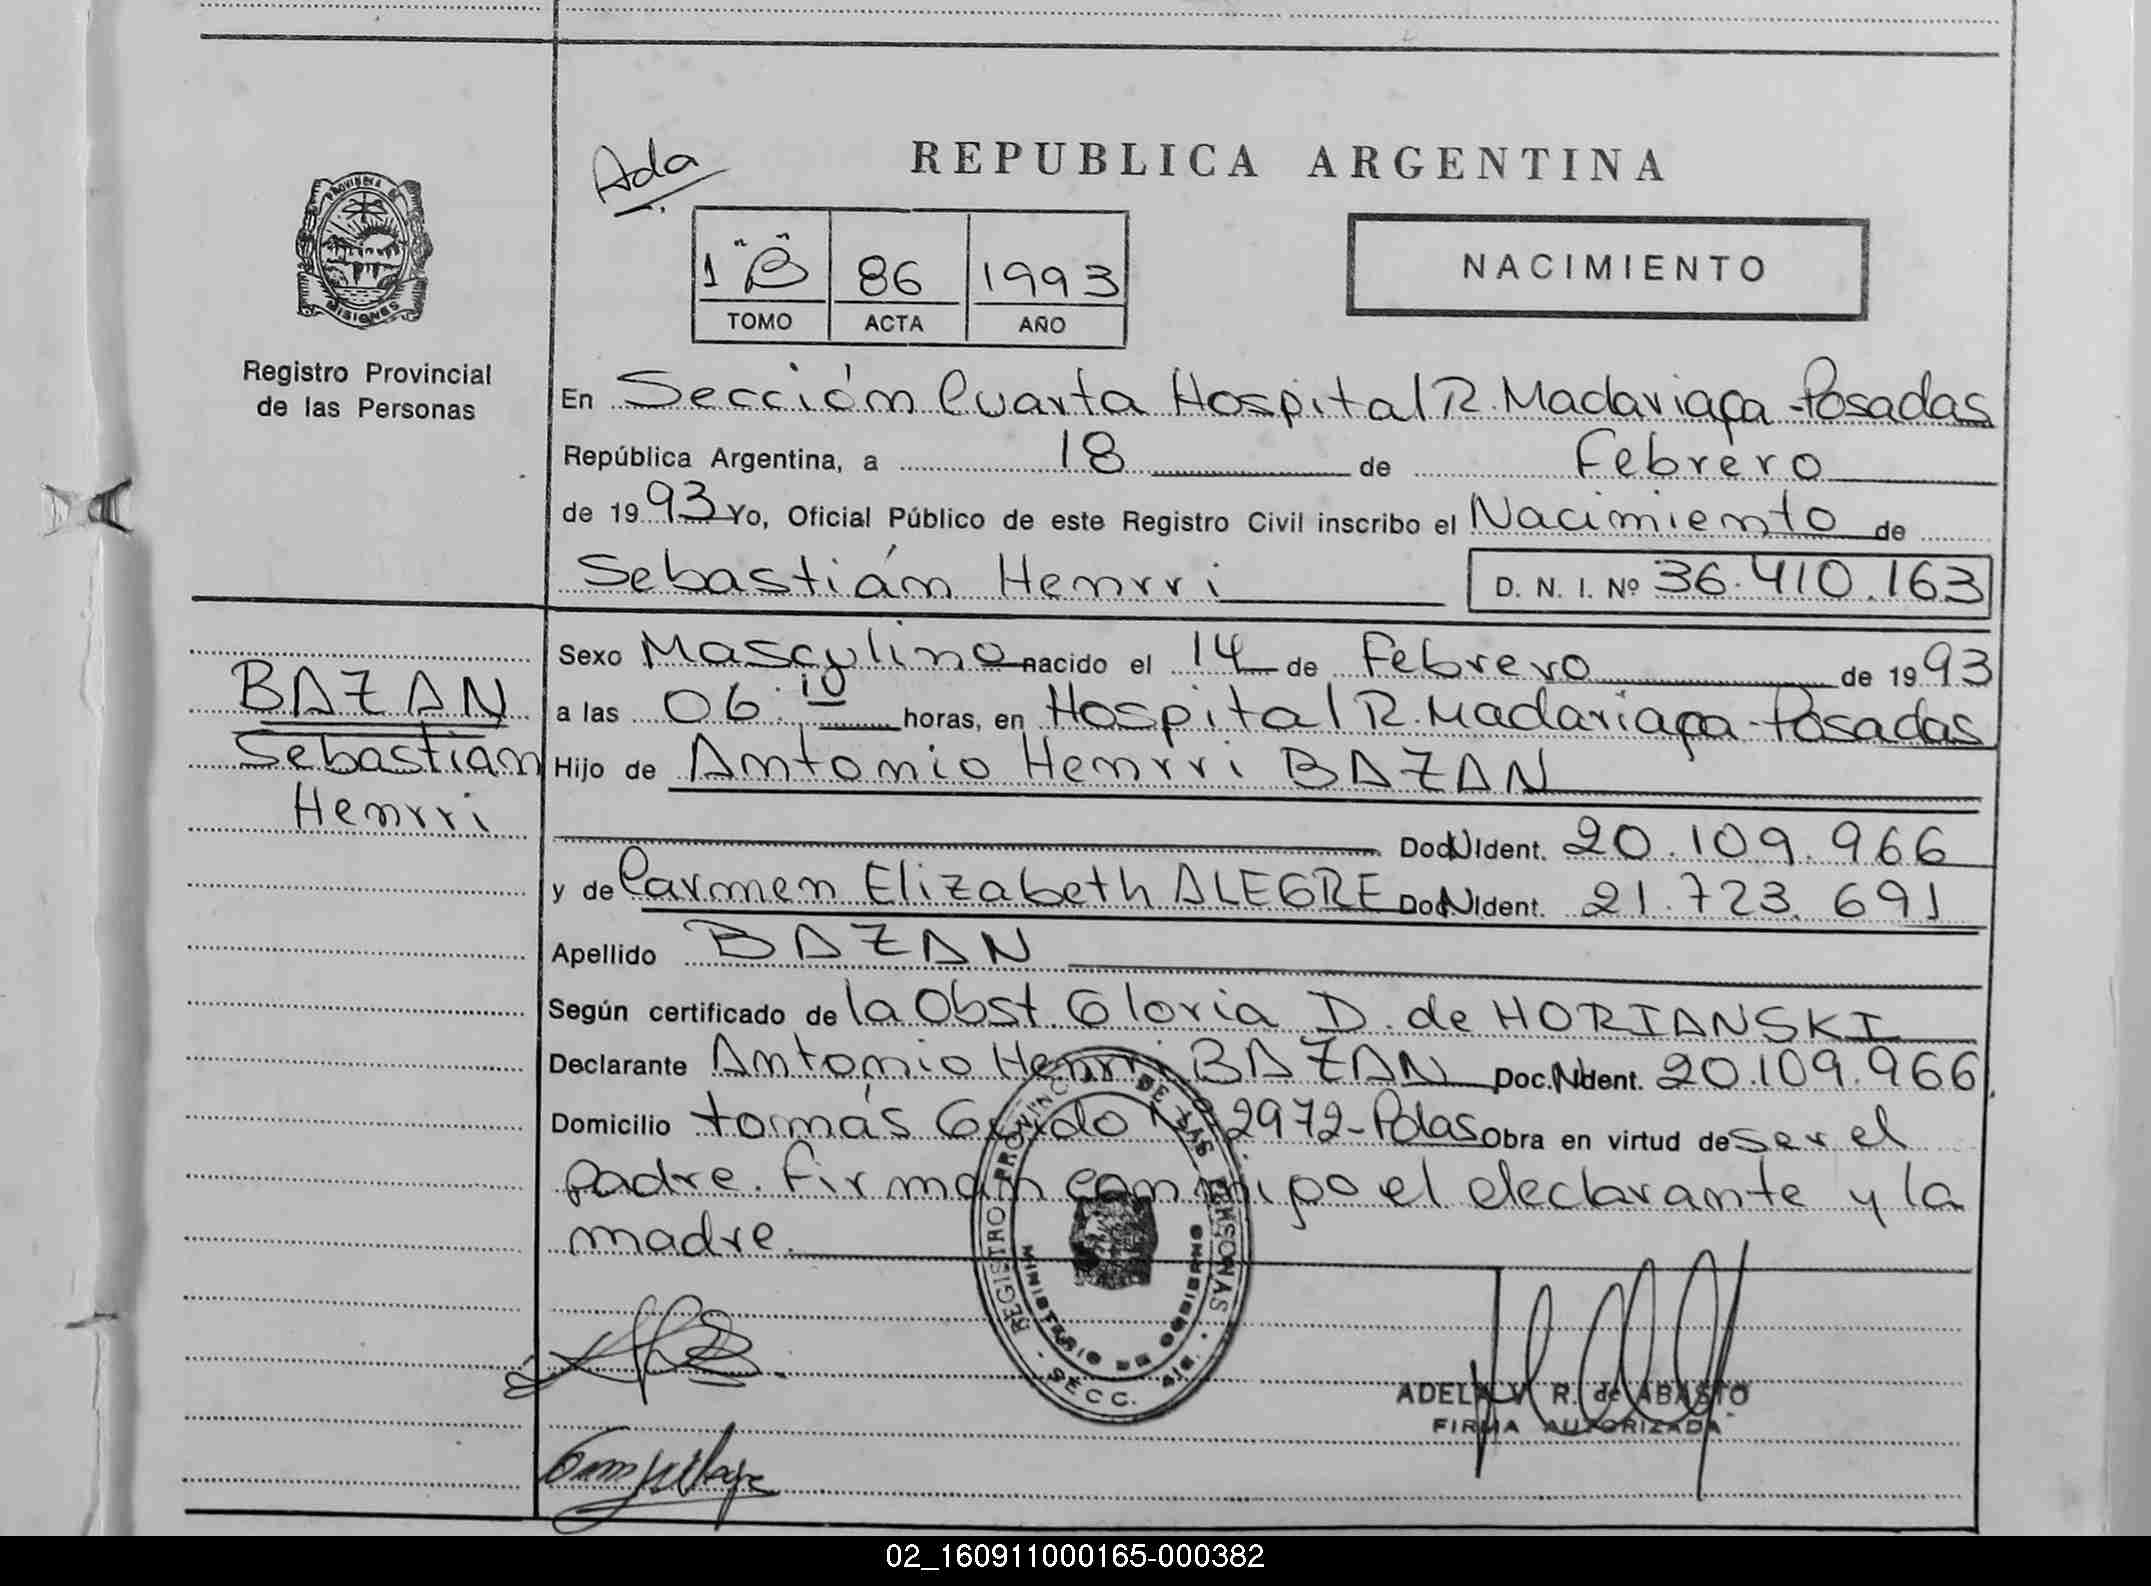 Ada
REPUBLICA ARGENTINA
PROVINCIA DE
MISIONES
1 "B" 86 1993
TOMO ACTA AÑO
NACIMIENTO
Registro Provincial
de las Personas
En Sección Cuarta Hospital R. Madariaga - Posadas
República Argentina, a 18 de Febrero
de 1993 Yo, Oficial Público de este Registro Civil inscribo el Nacimiento de
Sebastián Henrri D. N. I. Nº 36.410.163
BAZAN
Sebastian
Henrri
Sexo Masculino nacido el 14 de Febrero de 1993
a las 06:10 horas, en Hospital R. Madariaga - Posadas
Hijo de Antonio Henrri BAZAN
Doc N Ident. 20.109.966
y de Carmen Elizabeth ALEGRE Doc N Ident. 21.723.691
Apellido BAZAN
Según certificado de la Obst. Gloria D. de HORIANSKI
Declarante Antonio Henrri BAZAN Doc. N Ident. 20.109.966
Domicilio tomás Guido Nº 2972 - Pdas Obra en virtud de ser el
padre. firman conmigo el declarante y la
madre.
REGISTRO PROVINCIAL DE LAS PERSONAS
MINISTERIO DE GOBIERNO
SECC. 4ta.
ADELA V. R. de ABASTO
FIRMA AUTORIZADA
02_160911000165-000382